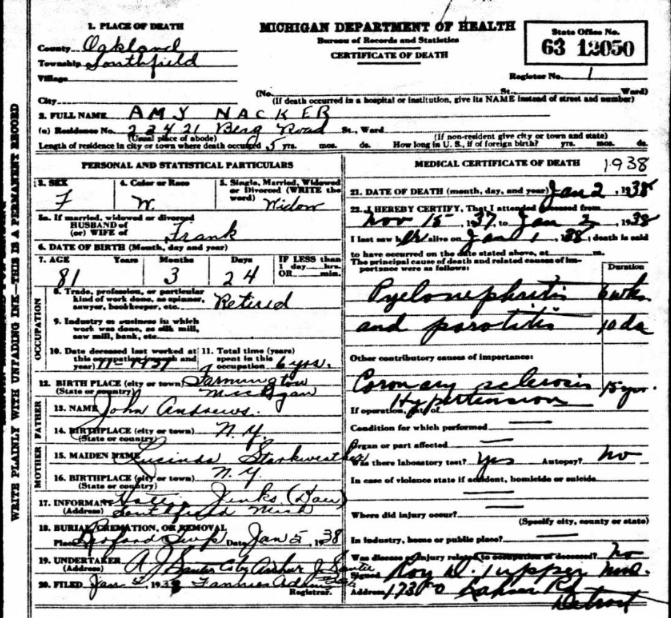 1. PLACE OF DEATH
County Oakland
Township Southfield
Village
City
MICHIGAN DEPARTMENT OF HEALTH
Bureau of Records and Statistics
CERTIFICATE OF DEATH
State Office No.
63 12050
Register No. 1
(No. St. Ward)
(If death occurred in a hospital or institution, give its NAME instead of street and number)
2. FULL NAME AMY NACKER
(a) Residence No. 22421 Berg Road St., Ward
(Usual place of abode) (If non-resident give city or town and state)
Length of residence in city or town where death occurred 5 yrs. mos. ds. How long in U. S., if of foreign birth? yrs. mos. ds.
PERSONAL AND STATISTICAL PARTICULARS
3. SEX
F
4. Color or Race
W.
5. Single, Married, Widowed or Divorced (WRITE the word)
Widow
5a. If married, widowed or divorced
HUSBAND of
(or) WIFE of Frank
6. DATE OF BIRTH (Month, day and year)
7. AGE Years Months Days IF LESS than
1 day hrs.
OR min.
81 3 24
OCCUPATION
8. Trade, profession, or particular kind of work done, as spinner, sawyer, bookkeeper, etc. Retired
9. Industry or business in which work was done, as silk mill, saw mill, bank, etc.
10. Date deceased last worked at this occupation (month and year) 11-1937
11. Total time (years) spent in this occupation 6 yrs.
12. BIRTH PLACE (city or town) Farmington
(State or country) Michigan
FATHER
13. NAME John Andrews.
14. BIRTHPLACE (city or town) N.Y.
(State or country)
MOTHER
15. MAIDEN NAME Lucinda Starkweather
16. BIRTHPLACE (city or town) N.Y.
(State or country)
17. INFORMANT Jinks (Dau)
(Address) Southfield Mich
18. BURIAL, CREMATION, OR REMOVAL
Place Date Jan 5, 1938
19. UNDERTAKER
(Address)
20. FILED Jan 1938
Registrar.
MEDICAL CERTIFICATE OF DEATH
1938
21. DATE OF DEATH (month, day, and year) Jan 2, 1938
22. I HEREBY CERTIFY, That I attended deceased from
Nov 15, 1937, to Jan 2, 1938
I last saw alive on Jan 1, 38; death is said
to have occurred on the date stated above, at m.
The principal cause of death and related causes of importance were as follows: Duration
Pyelonephritis 6 wks
and parotitis 10 da
Other contributory causes of importance:
Coronary sclerosis 15 yr.
Hypertension
If operation, date of
Condition for which performed
Organ or part affected
Was there laboratory test? yes Autopsy? no
In case of violence state if accident, homicide or suicide
Where did injury occur?
(Specify city, county or state)
In industry, home or public place?
Was disease or injury related to occupation of deceased? no
Signed Roy D. Tupper M.D.
Address 17300 Lahser Rd
Detroit
WRITE PLAINLY WITH UNFADING INK—THIS IS A PERMANENT RECORD